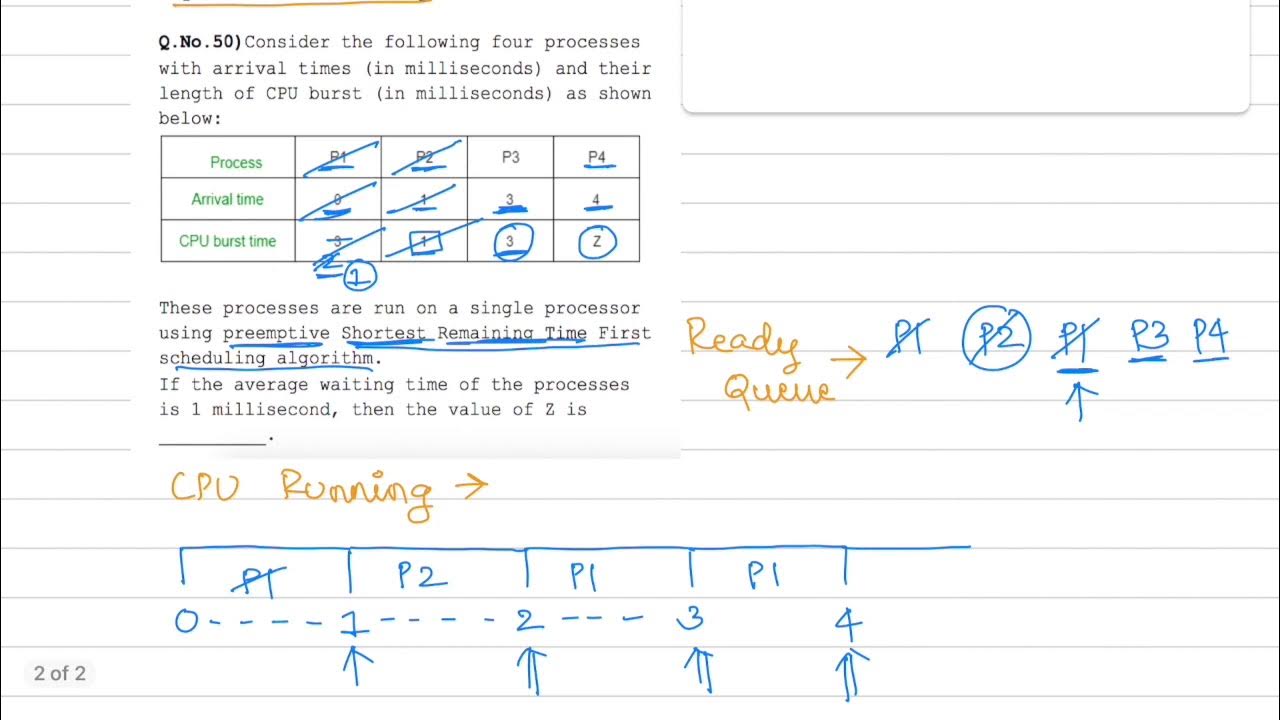 Q.No.50)Consider the following four processes
with arrival times (in milliseconds) and their
length of CPU burst (in milliseconds) as shown
below:
Process P1 P2 P3 P4
Arrival time 0 1 3 4
CPU burst time 3 1 3 Z
2 1
These processes are run on a single processor
using preemptive Shortest Remaining Time First
scheduling algorithm.
If the average waiting time of the processes
is 1 millisecond, then the value of Z is
__________.
Ready Queue → P1 P2 P1 P3 P4
CPU Running →
P1 P2 P1 P1
0 - - - - 1 - - - - 2 - - - 3 4
2 of 2